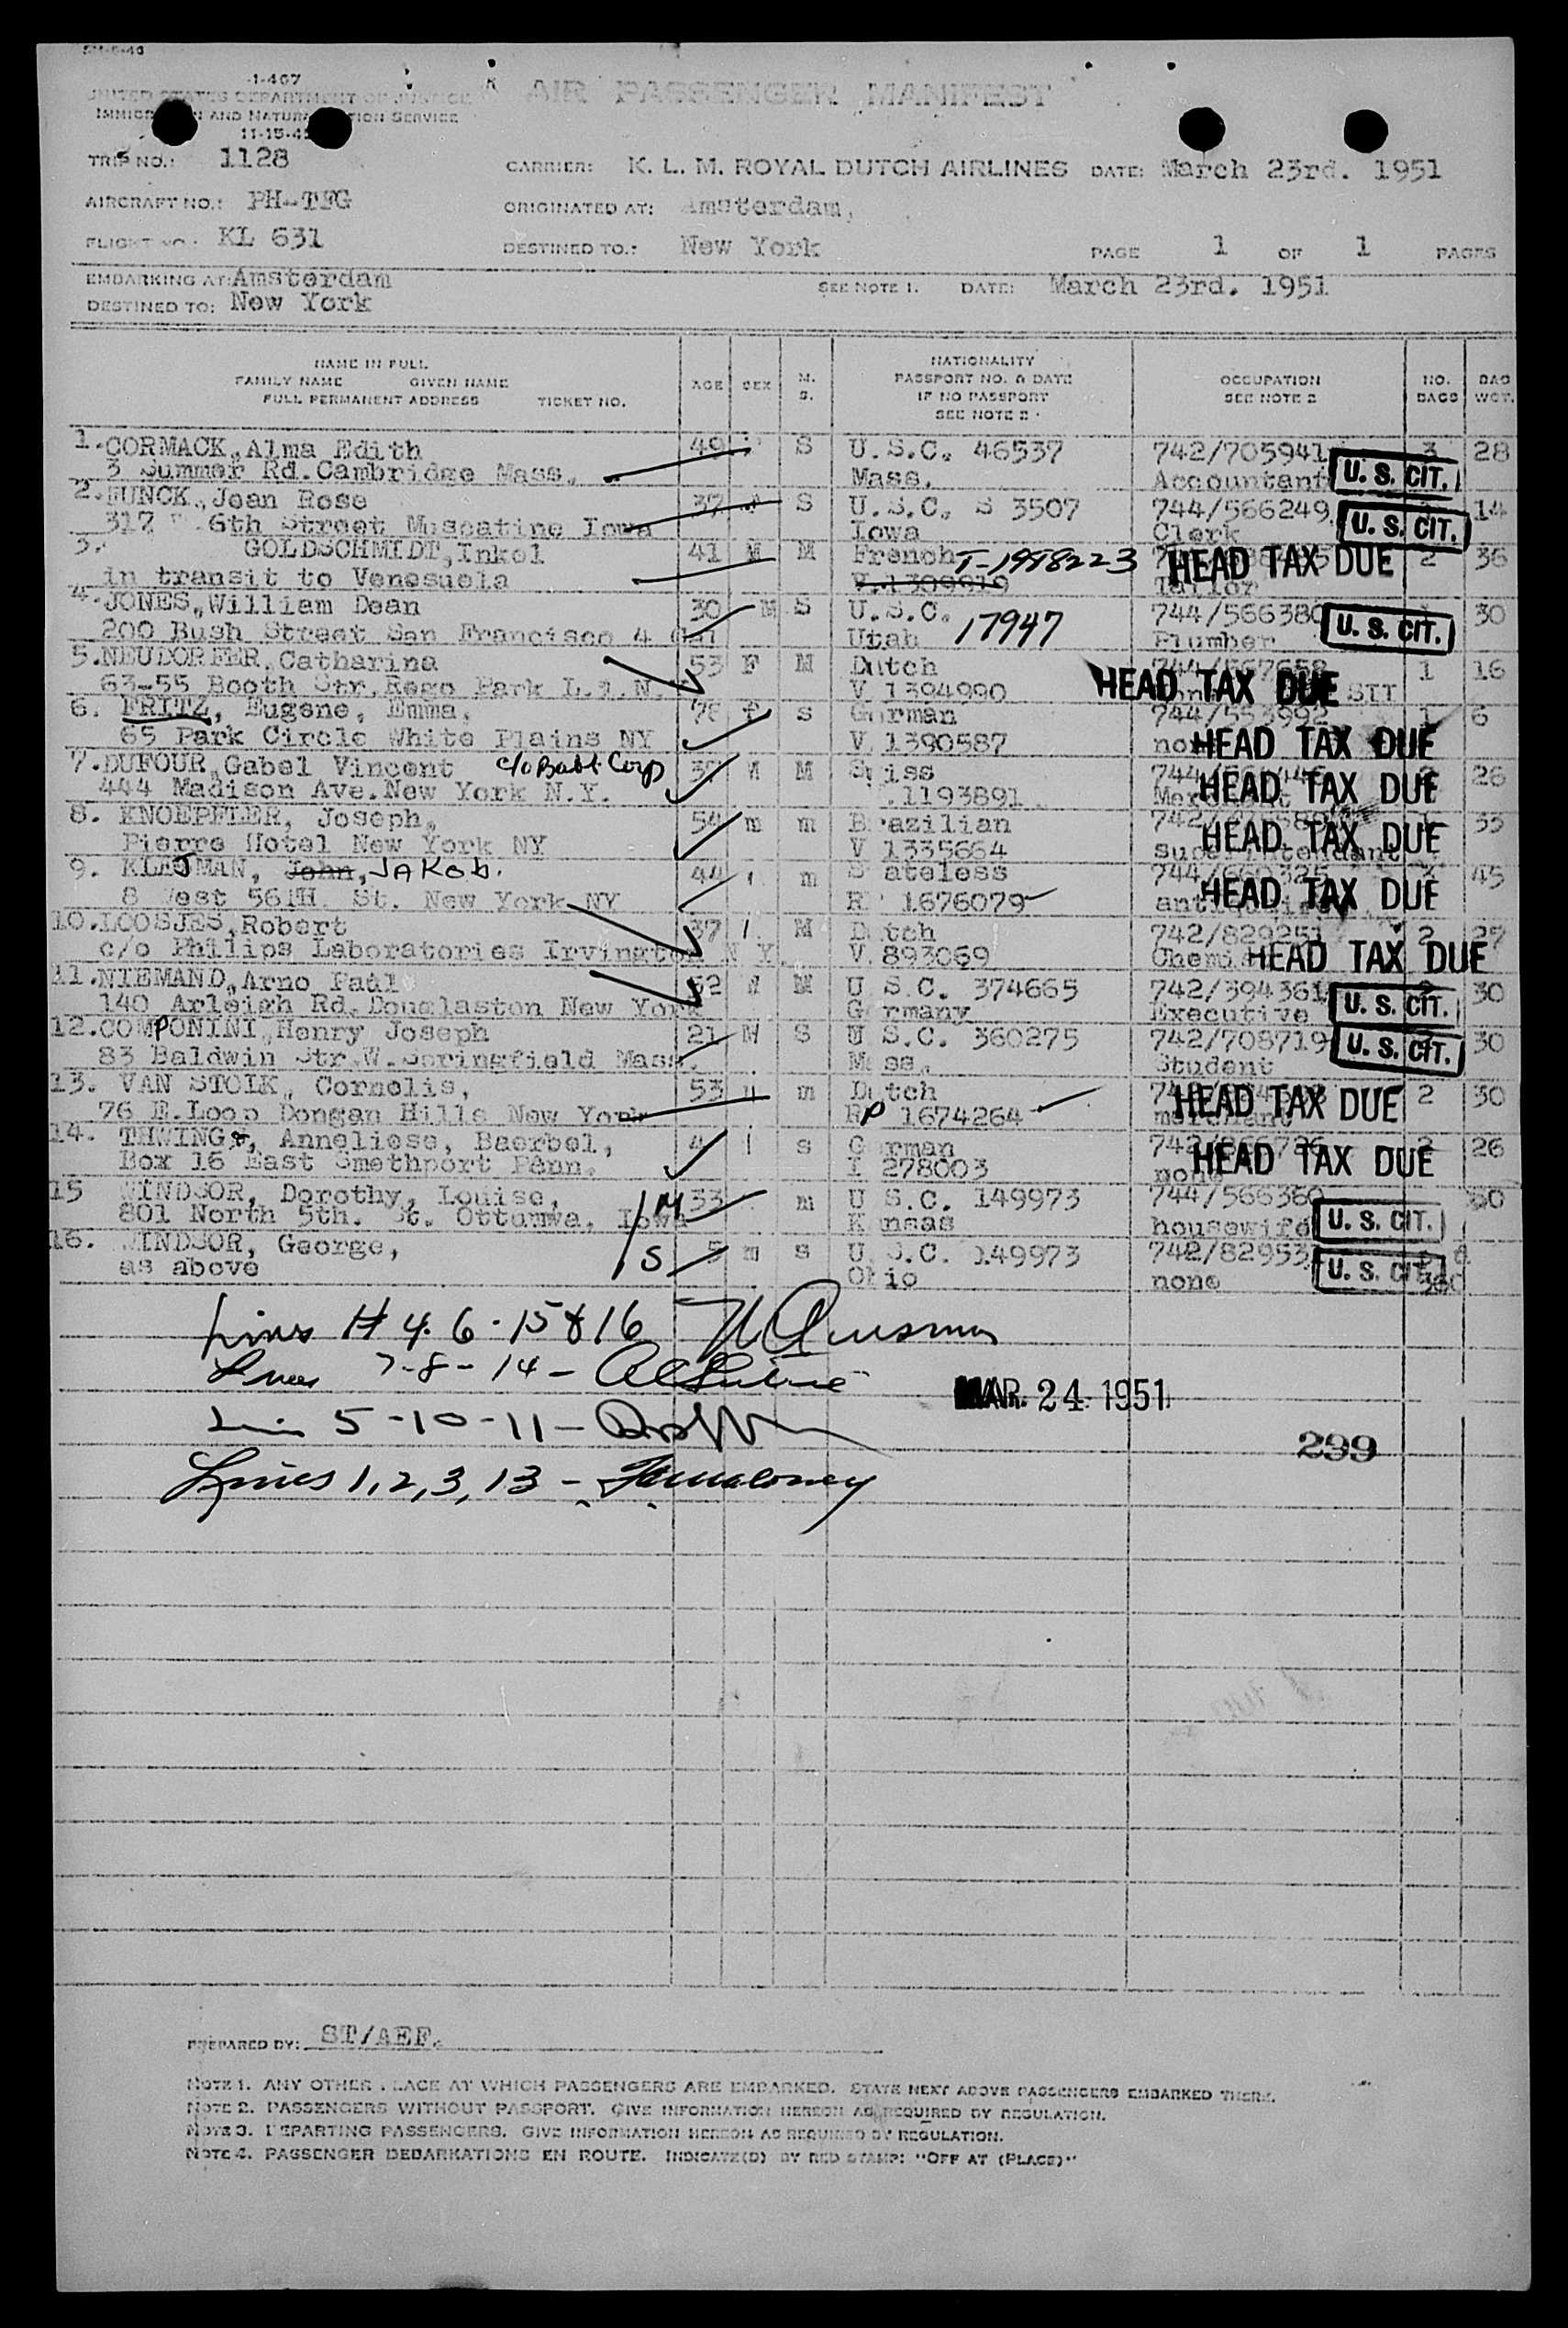 1-467
UNITED STATES DEPARTMENT OF JUSTICE
AIR PASSENGER MANIFEST
AND SERVICE
TRIP NO.: 1128 CARRIER: K. L. M. ROYAL DUTCH AIRLINES DATE: March 23rd. 1951
AIRCRAFT NO.: PH-TFG ORIGINATED AT: Amsterdam,
FLIGHT NO.: KL 631 DESTINED TO.: New York PAGE 1 OF 1 PAGES
EMBARKING AT: Amsterdam SEE NOTE 1. DATE: March 23rd. 1951
DESTINED TO: New York
NAME IN FULL
FAMILY NAME GIVEN NAME
FULL PERMANENT ADDRESS TICKET NO.
AGE SEX M. S.
NATIONALITY
PASSPORT NO. & DATE
IF NO PASSPORT
SEE NOTE 2
OCCUPATION
SEE NOTE 2
NO. BAGS
BAG WGT.
1. CORMACK, Alma Edith 49 S U.S.C. 46537 742/705941 3 28
3 Summer Rd. Cambridge Mass. Mass. Accountant U. S. CIT.
2. Jean Rose 37 S U.S.C. S 3507 744/566249 14
317 6th Street Muscatine Iowa Iowa Clerk U. S. CIT.
3. GOLDSCHMIDT, Inkel 41 M M French T-1998223 HEAD TAX DUE 2 36
in transit to Venesuela V.1309919 Tailor
4. JONES, William Dean 30 M S U.S.C. 17947 744/566380 30
200 Bush Street San Francisco 4 Cal Utah Plumber U. S. CIT.
5. NEUDORFER, Catharina 53 F M Dutch 744/567658 1 16
63-55 Booth Str. Rego Park L.i.N. V 1394990 HEAD TAX DUE
6. FRITZ, Eugene, Emma, f s German 744/553992 1 6
65 Park Circle White Plains NY V 1390587 HEAD TAX DUE
7. DUFOUR, Gabel Vincent c/o Corp M M Swiss 26
444 Madison Ave. New York N.Y. 1193891 HEAD TAX DUE
8. KNOEPFLER, Joseph, 54 m m Brazilian 33
Pierre Hotel New York NY V 1335664 Superintendant HEAD TAX DUE
9. KLEJMAN, John, JAKob. 44 m Stateless 744/660325 45
8 West 56TH. St. New York NY R 1676079 HEAD TAX DUE
10. LOOSJES, Robert 37 M Dutch 742/829251 2 27
c/o Philips Laboratories Irvington N Y. V. 893069 HEAD TAX DUE
11. NIEMAND, Arno Paul 52 M M U.S.C. 374665 742/394361 30
140 Arleigh Rd. Douglaston New York Germany Executive U. S. CIT.
12. COMPONINI, Henry Joseph 21 M S U S.C. 360275 742/708719 30
83 Baldwin Str. W. Springfield Mass. Mass. Student U. S. CIT.
13. VAN STOLK, Cornelis, 53 m Dutch 2 30
76 E. Loop Dongan Hills New York RP 1674264 merchant HEAD TAX DUE
14. THWING, Anneliese, Baerbel, 4 s German 26
Box 16 East Smethport Penn. I 278003 none HEAD TAX DUE
15 WINDSOR, Dorothy, Louise, M 33 m U S.C. 149973 744/566360 60
801 North 5th. St. Ottumwa, Iowa Kansas housewife U. S. CIT.
16. WINDSOR, George, S 5 m s U.S.C. 149973 742/82953
as above Ohio none U. S. CIT.
Lines # 4. 6. 15 & 16
Lines 7-8-14-
5-10-11-
MAR. 24 1951
299
Lines 1, 2, 3, 13 -
PREPARED BY: ST/AEF.
NOTE 1. ANY OTHER PLACE AT WHICH PASSENGERS ARE EMBARKED. STATE NEXT ABOVE PASSENGERS EMBARKED THERE.
NOTE 2. PASSENGERS WITHOUT PASSPORT. GIVE INFORMATION HEREON AS REQUIRED BY REGULATION.
NOTE 3. DEPARTING PASSENGERS. GIVE INFORMATION HEREON AS REQUIRED BY REGULATION.
NOTE 4. PASSENGER DEBARKATIONS EN ROUTE. INDICATE(D) BY RED STAMP: "OFF AT (PLACE)"